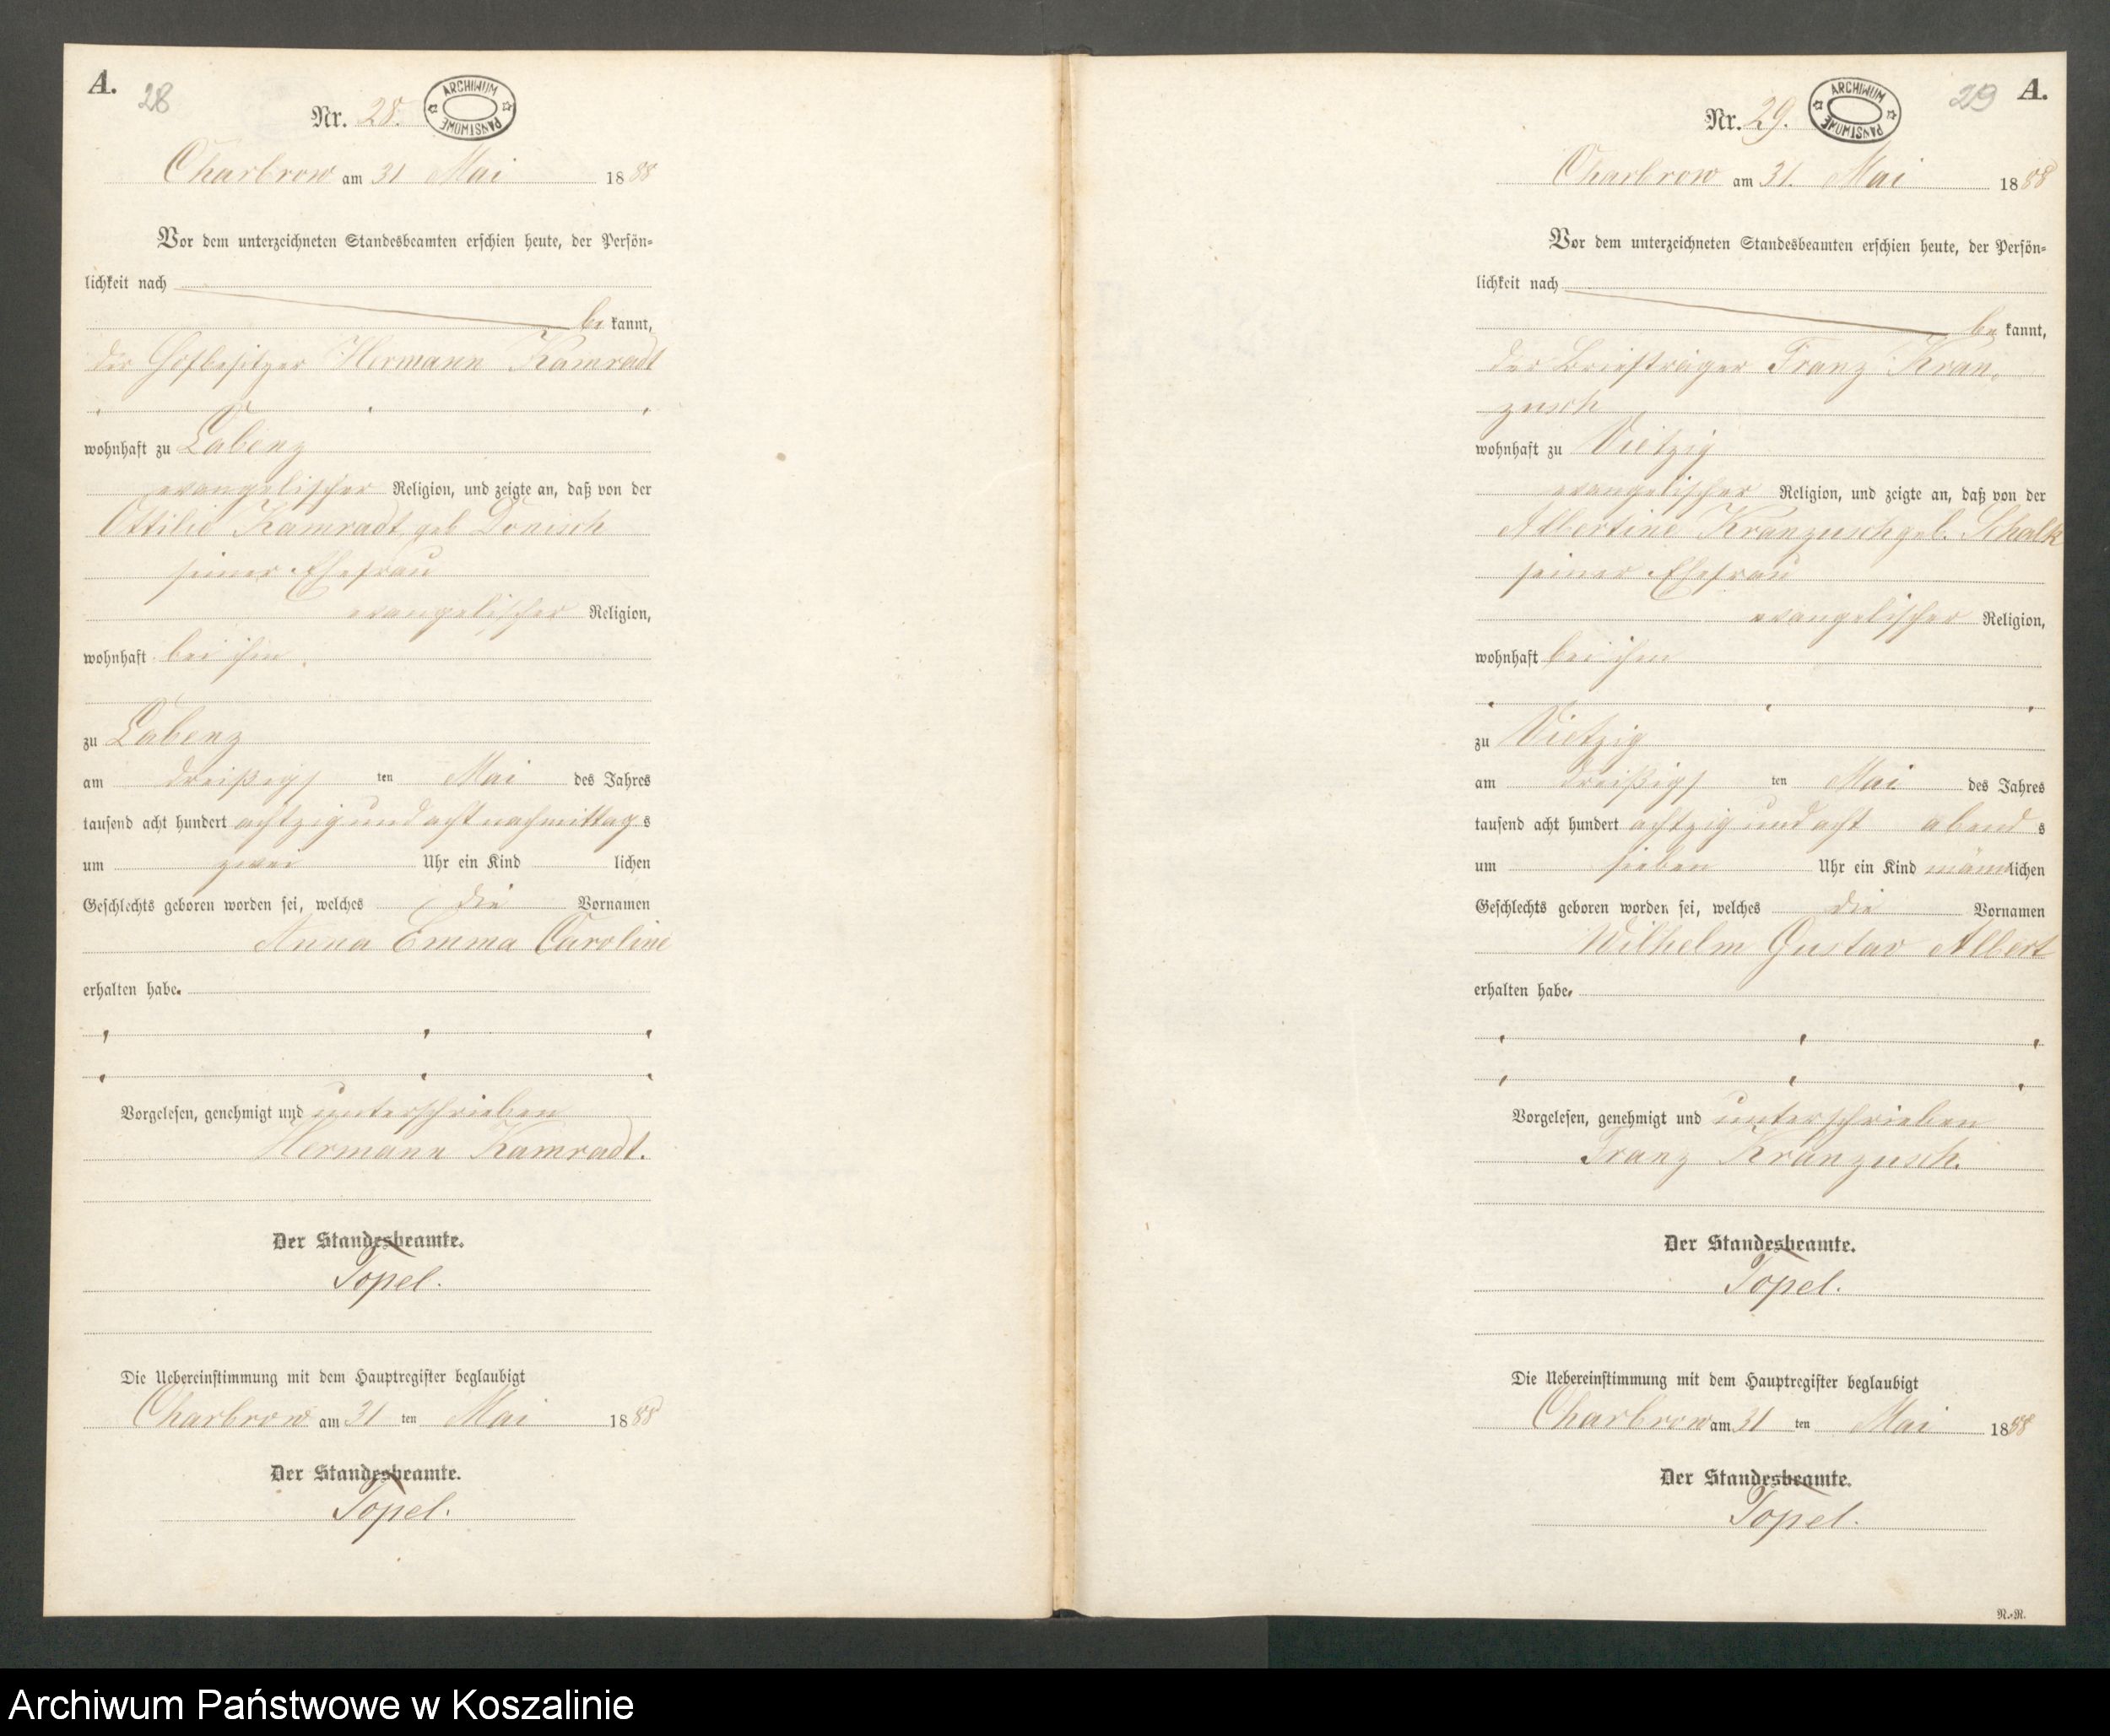 A. 28
Nr. 28.
ARCHIWUM PAŃSTWOWE
Charbrow am 31 Mai 1888
Vor dem unterzeichneten Standesbeamten erschien heute, der Persön-
lichkeit nach
be kannt,
der Hofbesitzer Hermann Kamradt
wohnhaft zu Labenz
evangelischer Religion, und zeigte an, daß von der
Ottilie Kamradt geb Donisch
seiner Ehefrau
evangelischer Religion,
wohnhaft bei ihm
zu Labenz
am dreißigs ten Mai des Jahres
tausend acht hundert achtzig und acht nachmittag s
um zwei Uhr ein Kind lichen
Geschlechts geboren worden sei, welches die Vornamen
Anna Emma Caroline
erhalten habe.
Vorgelesen, genehmigt und unterschrieben
Hermann Kamradt.
Der Standesbeamte.
Topel.
Die Uebereinstimmung mit dem Hauptregister beglaubigt
Charbrow am 31 ten Mai 1888
Der Standesbeamte.
Topel.
29 A.
Nr. 29.
ARCHIWUM PAŃSTWOWE
Charbrow am 31. Mai 1888
Vor dem unterzeichneten Standesbeamten erschien heute, der Persön-
lichkeit nach
be kannt,
der Briefträger Franz Kran-
zusch
wohnhaft zu Vietzig
evangelischer Religion, und zeigte an, daß von der
Albertine Kranzusch geb. Schalk
seiner Ehefrau
evangelischer Religion,
wohnhaft bei ihm
zu Vietzig
am dreißigs ten Mai des Jahres
tausend acht hundert achtzig und acht abend s
um sieben Uhr ein Kind männlichen
Geschlechts geboren worden sei, welches die Vornamen
Wilhelm Gustav Albert
erhalten habe.
Vorgelesen, genehmigt und unterschrieben
Franz Kranzusch.
Der Standesbeamte.
Topel.
Die Uebereinstimmung mit dem Hauptregister beglaubigt
Charbrow am 31 ten Mai 1888
Der Standesbeamte.
Topel.
N.-R.
Archiwum Państwowe w Koszalinie